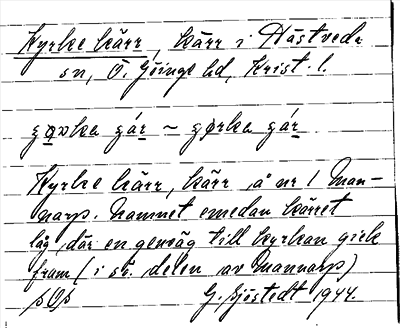 Kyrke kärr, kärr i Hästveda
sn, Ö. Göinge hd, Krist. l.
Kyrke kärr, kärr å nr 1 Man-
narp. Namnet emedan kärret
låg, där en genväg till kyrkan gick
fram (i sö. delen av Mannarp)
G. Sjöstedt 1944.